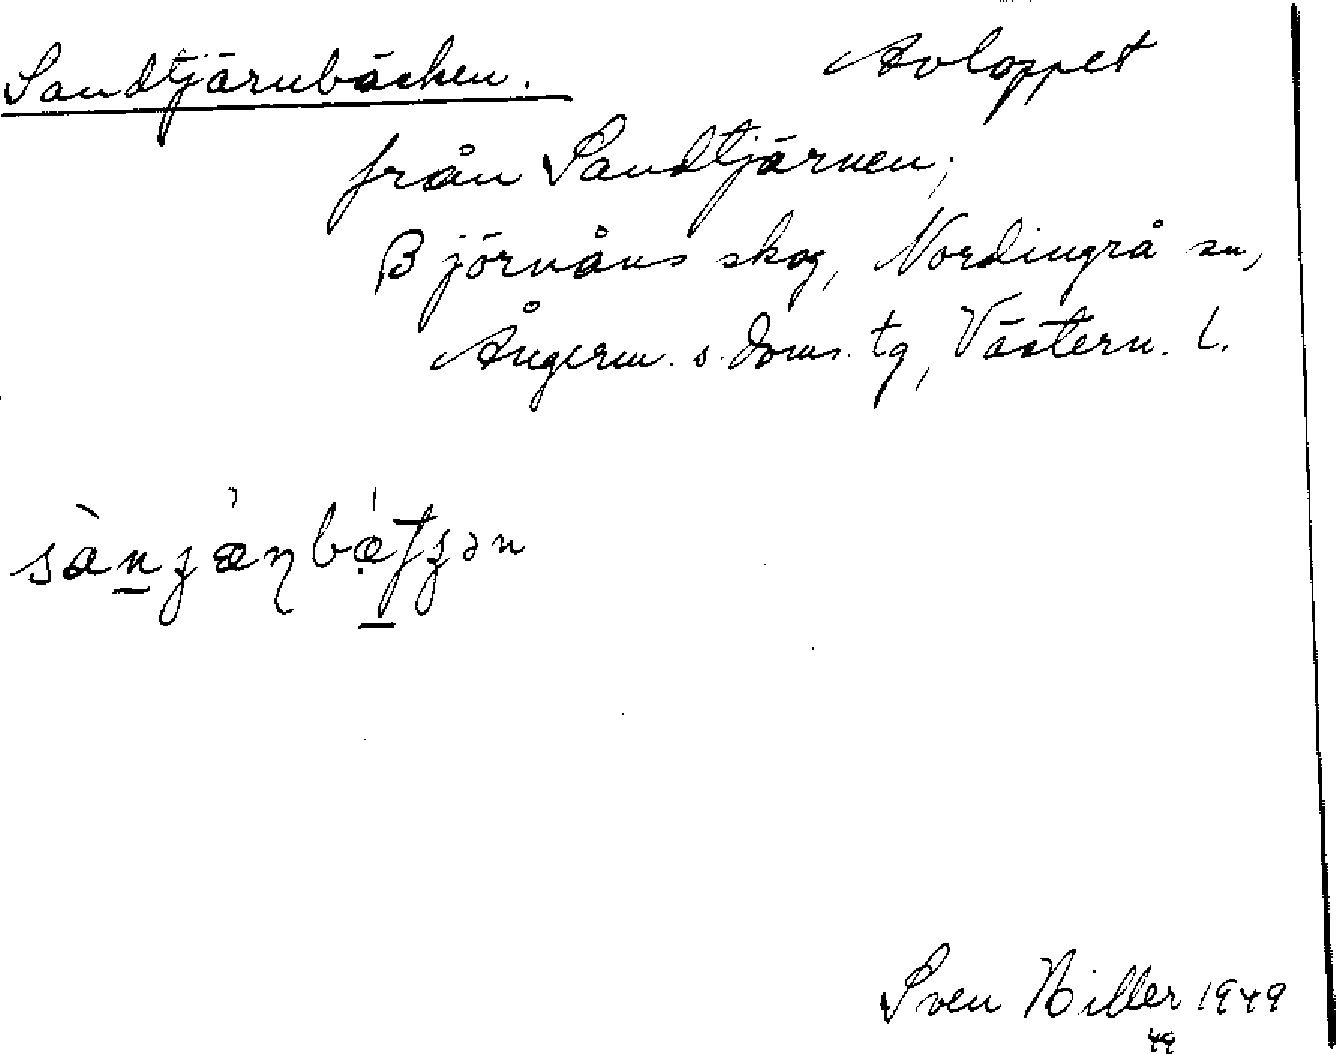 Sandtjärnbäcken. Avloppet
från Sandtjärnen;
Björnåns skog, Nordingrå sn,
Ångerm. s. doms. tg, Västern. L.
Sven Hiller 1949
49